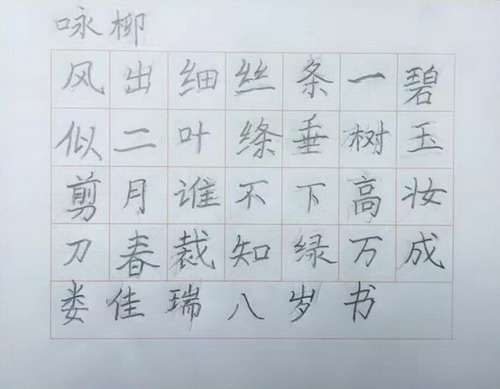 咏柳
碧玉妆成
一树高万
条垂下绿
丝绦不知
细叶谁裁
出二月春
风似剪刀
娄佳瑞八岁书